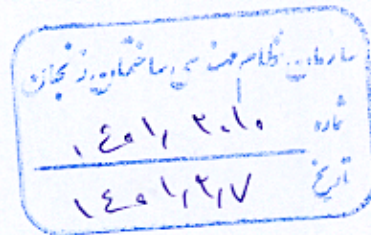 سازمان نظام مهندسی ساختمان زنجان
شماره ۱۴۰۱، ۳۰۱۰
تاریخ ۱۴۰۱/۳/۷